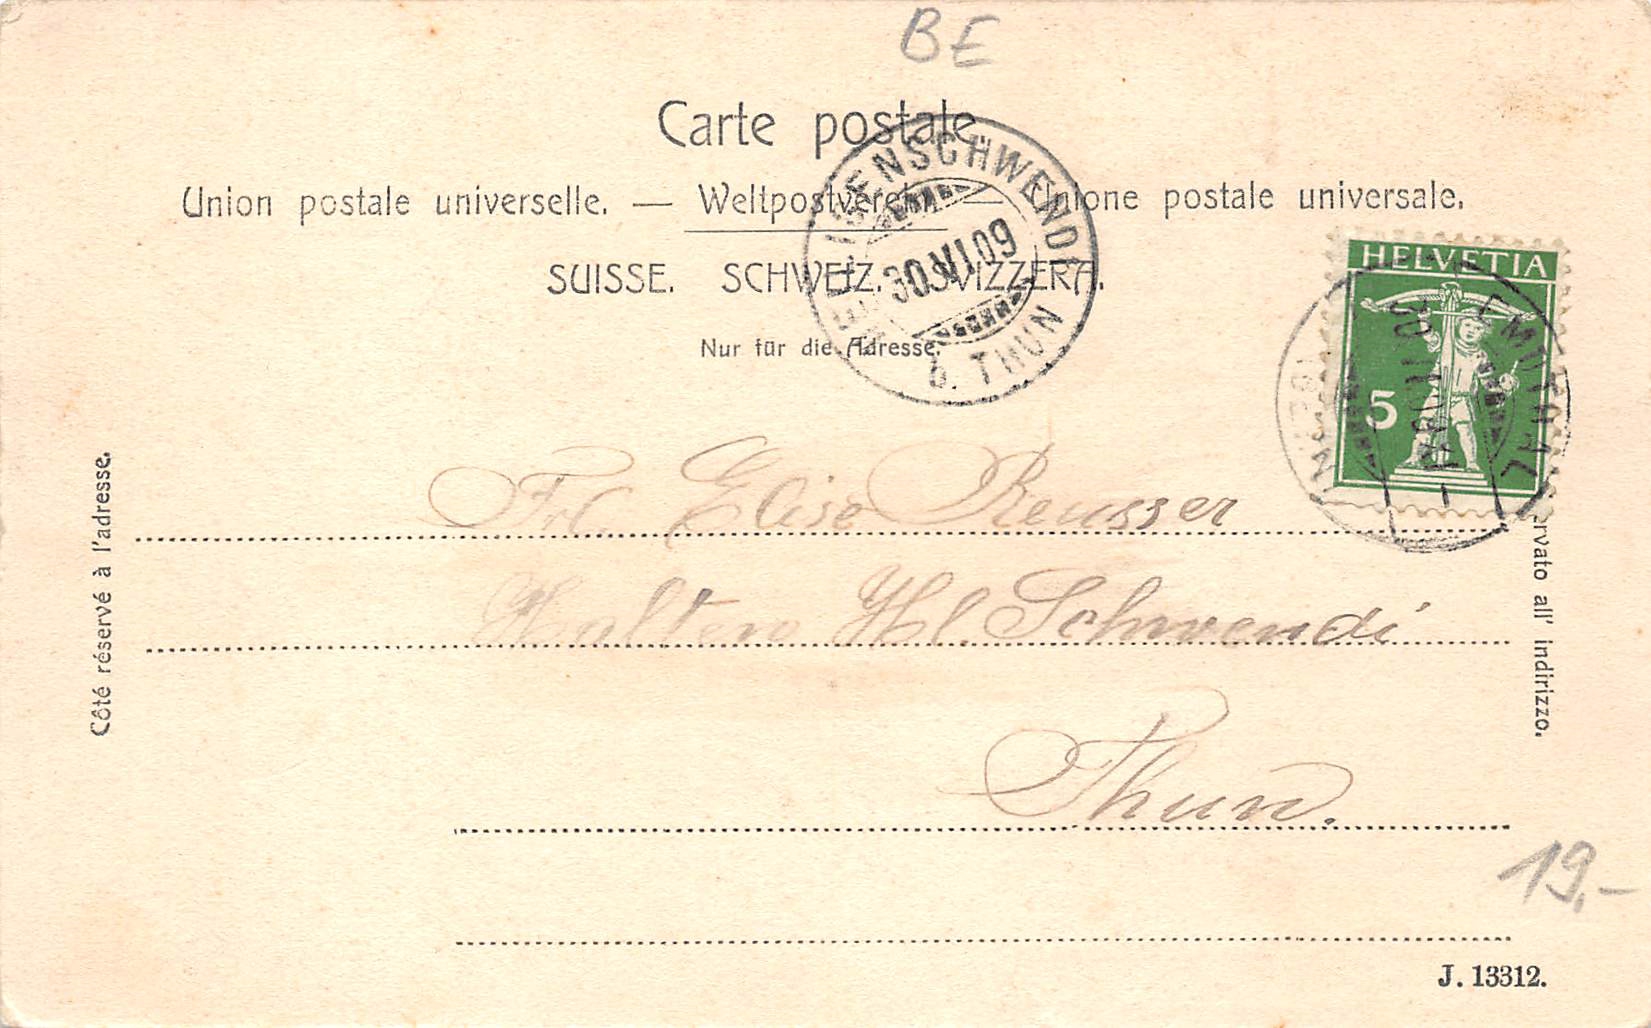 BE
Carte postale
Union postale universelle. — Weltpostverein — Unione postale universale.
SUISSE. SCHWEIZ. SVIZZERA.
Nur für die Adresse.
HEILIGENSCHWENDI
30.VI.09
b. THUN
HELVETIA
5
EMDTHAL
Côté réservé à l'adresse.
rvato all' indirizzo.
Frl. Elise Reusser
Haltern Hl. Schwendi
Thun.
19,-
J. 13312.